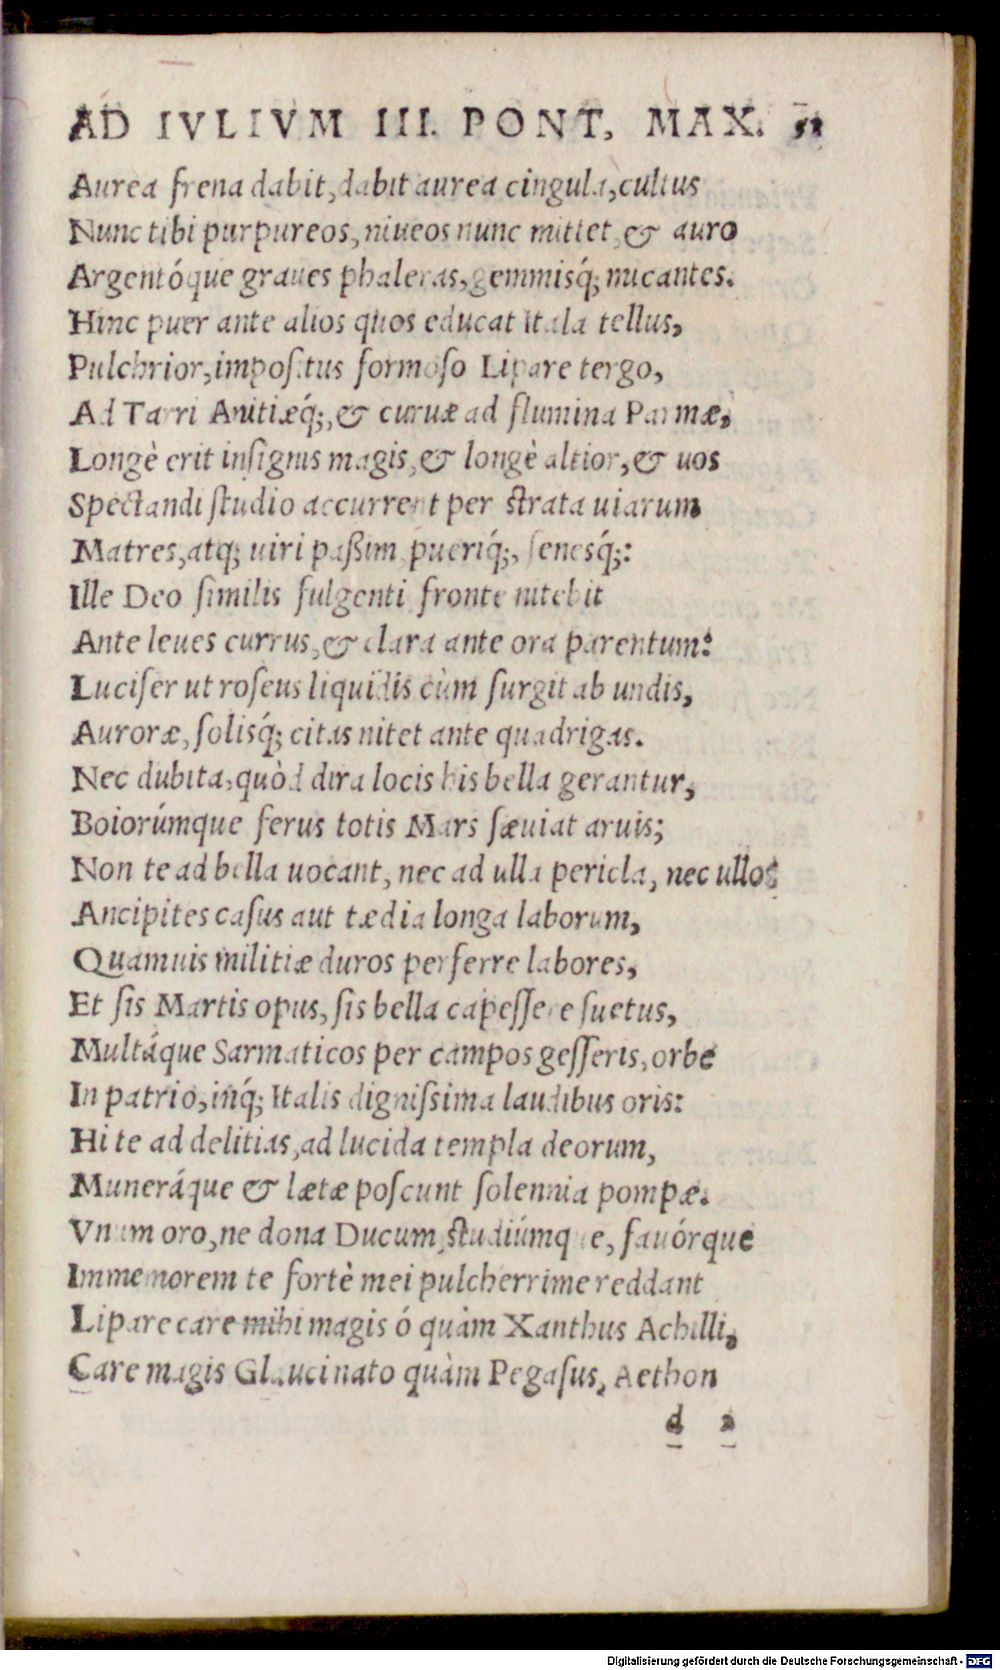 AD IVLIVM III. PONT, MAX. 51
Aurea frena dabit, dabit aurea cingula, cultus
Nunc tibi purpureos, niueos nunc mittet, & auro
Argentóque graues phaleras, gemmisq́; micantes.
Hinc puer ante alios quos educat Itala tellus,
Pulchrior, impositus formoso Lipare tergo,
Ad Tarri Anitiæq́;, & curuæ ad flumina Parmæ,
Longè erit insignis magis, & longè altior, & uos
Spectandi studio accurrent per strata uiarum
Matres, atq; uiri paßim pueriq́;, senesq́;:
Ille Deo similis fulgenti fronte nitebit
Ante leues currus, & clara ante ora parentum:
Lucifer ut roseus liquidis cùm surgit ab undis,
Auroræ, solisq́; citas nitet ante quadrigas.
Nec dubita, quòd dira locis his bella gerantur,
Boiorúmque ferus totis Mars sæuiat aruis;
Non te ad bella uocant, nec ad ulla pericla, nec ullos
Ancipites casus aut tædia longa laborum,
Quamuis militiæ duros perferre labores,
Et sis Martis opus, sis bella capessere suetus,
Multáque Sarmaticos per campos gesseris, orbe
In patrio, inq́; Italis dignissima laudibus oris:
Hi te ad delitias, ad lucida templa deorum,
Muneráque & lætæ poscunt solennia pompæ.
Vnum oro, ne dona Ducum, studiúmque, fauórque
Immemorem te fortè mei pulcherrime reddant
Lipare care mihi magis ó quàm Xanthus Achilli,
Care magis Glauci nato quàm Pegasus, Aethon
d 2
Digitalisierung gefördert durch die Deutsche Forschungsgemeinschaft - DFG